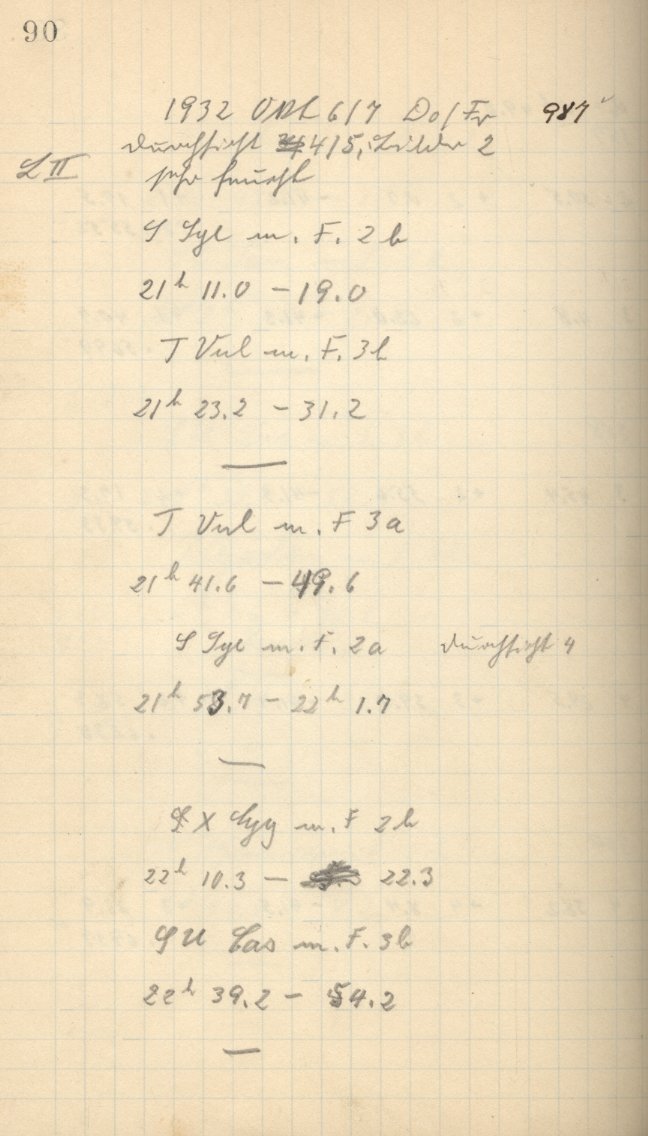 90
1932 Okt 6/7 Do/Fr 987
Durchsicht 4/5, Bilder 2
L II sehr feucht
S Sge m. F. 2b
21h 11.0 – 19.0
T Vul m. F. 3b
21h 23.2 – 31.2
T Vul m. F 3a
21h 41.6 – 49.6
S Sge m. F. 2a Durchsicht 4
21h 53.7 – 22h 1.7
X Cyg m. F 2b
22h 10.3 – 22.3
SU Cas m. F. 3b
22h 39.2 – 54.2